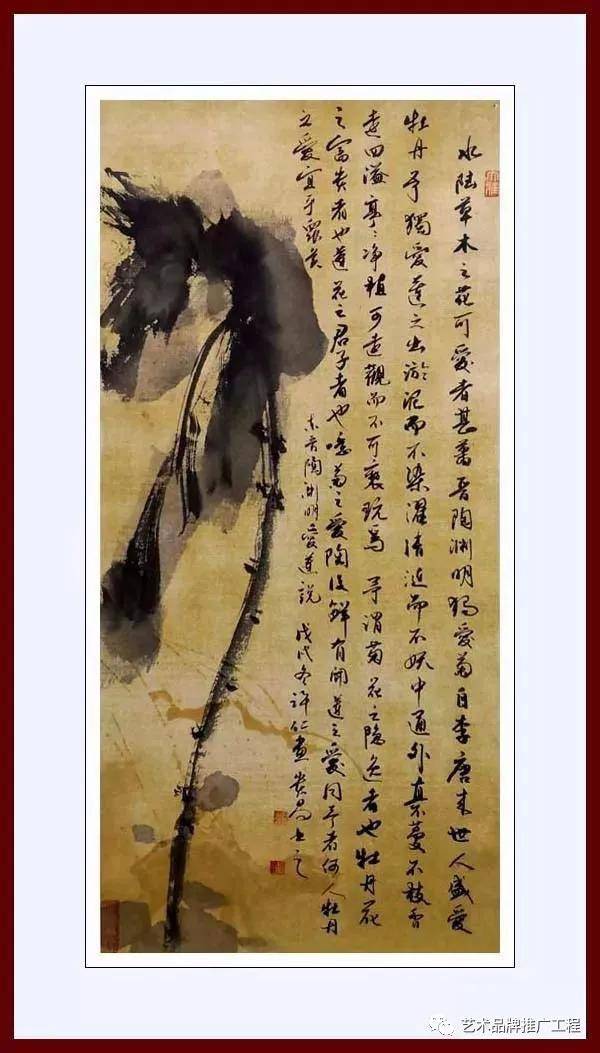 水陆草木之花可愛者甚蕃晋陶渊明独愛菊自李唐来世人盛愛
牡丹予獨愛蓮之出淤泥而不染濯清涟而不妖中通外直蔓不枝香
遠四溢亭々净植可遠觀而不可褻玩焉 予謂菊花之隐逸者也牡丹花
之富貴者也蓮花之君子者也噫菊之愛陶後鮮有聞蓮之愛同予者何人牡丹
之愛宜乎眾矣
东晋陶渊明愛蓮說 戊戌冬许仁畫 书之
艺术品牌推广工程